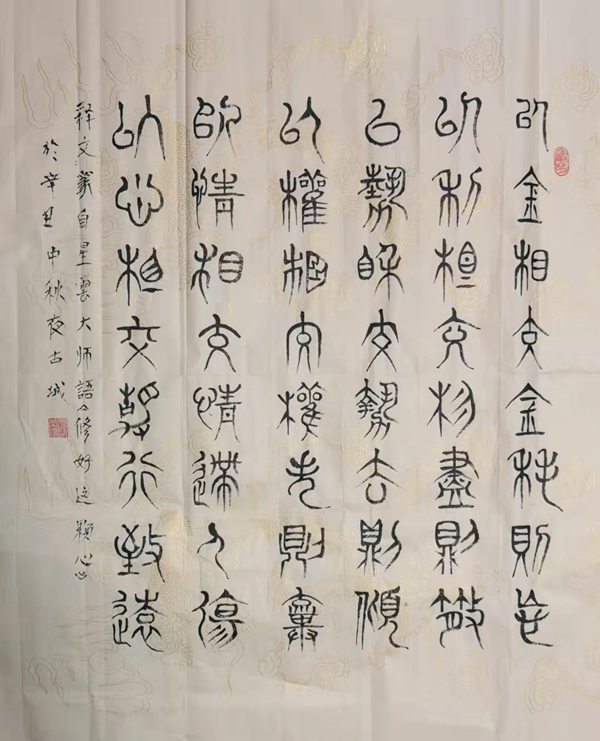 以金相交金耗則忘
以利相交利盡則散
以勢相交勢去則傾
以權相交權失則棄
以情相交情逝人傷
以心相交静行致遠
释文篆自星雲大师語《修好这颗心》
於辛丑中秋夜古城